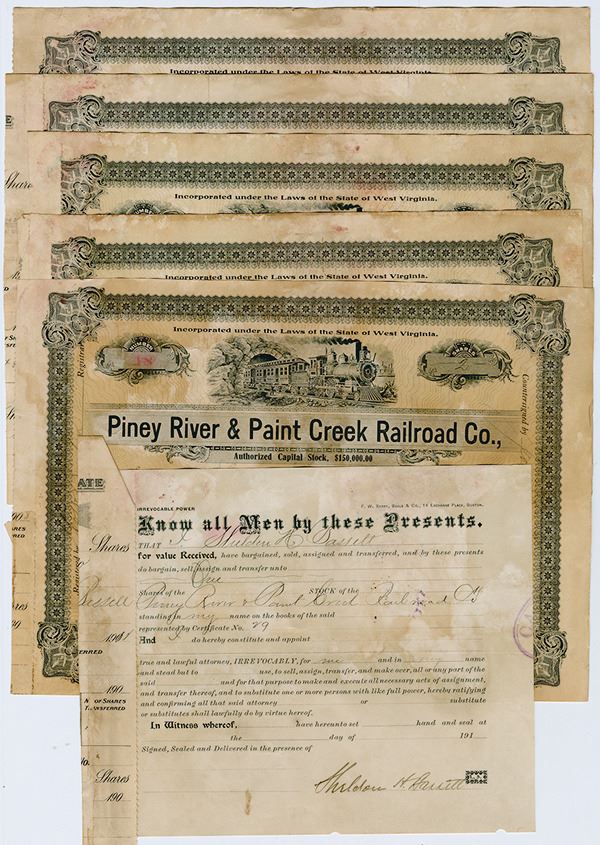 Incorporated under the Laws of the State of West Virginia.
Shares
Incorporated under the Laws of the State of West Virginia.
Incorporated under the Laws of the State of West Virginia.
Incorporated under the Laws of the State of West Virginia.
NUMBER
SHARES
Countersigned by
Piney River & Paint Creek Railroad Co.,
Authorized Capital Stock, $150,000.00
ATE
Shares
190
SHARES
TRANSFERRED
Shares
190
IRREVOCABLE POWER
F. W. BARRY, BEALE & CO., 14 EXCHANGE PLACE, BOSTON.
Know all Men by these Presents.
THAT I Sheldon H. Bassett
for value Received, have bargained, sold, assigned and transferred, and by these presents
do bargain, sell, assign and transfer unto
One
Shares of the STOCK of the
Piney River & Paint Creek Railroad Co
standing in my name on the books of the said
represented by Certificate No. 29
And I do hereby constitute and appoint
true and lawful attorney, IRREVOCABLY, for me and in name
and stead but to use, to sell, assign, transfer, and make over, all or any part of the
said and for that purpose to make and execute all necessary acts of assignment,
and transfer thereof, and to substitute one or more persons with like full power, hereby ratifying
and confirming all that said attorney or substitute
or substitutes shall lawfully do by virtue hereof.
In Witness whereof, have hereunto set hand and seal at
the day of 191
Signed, Sealed and Delivered in the presence of
Sheldon H. Bassett